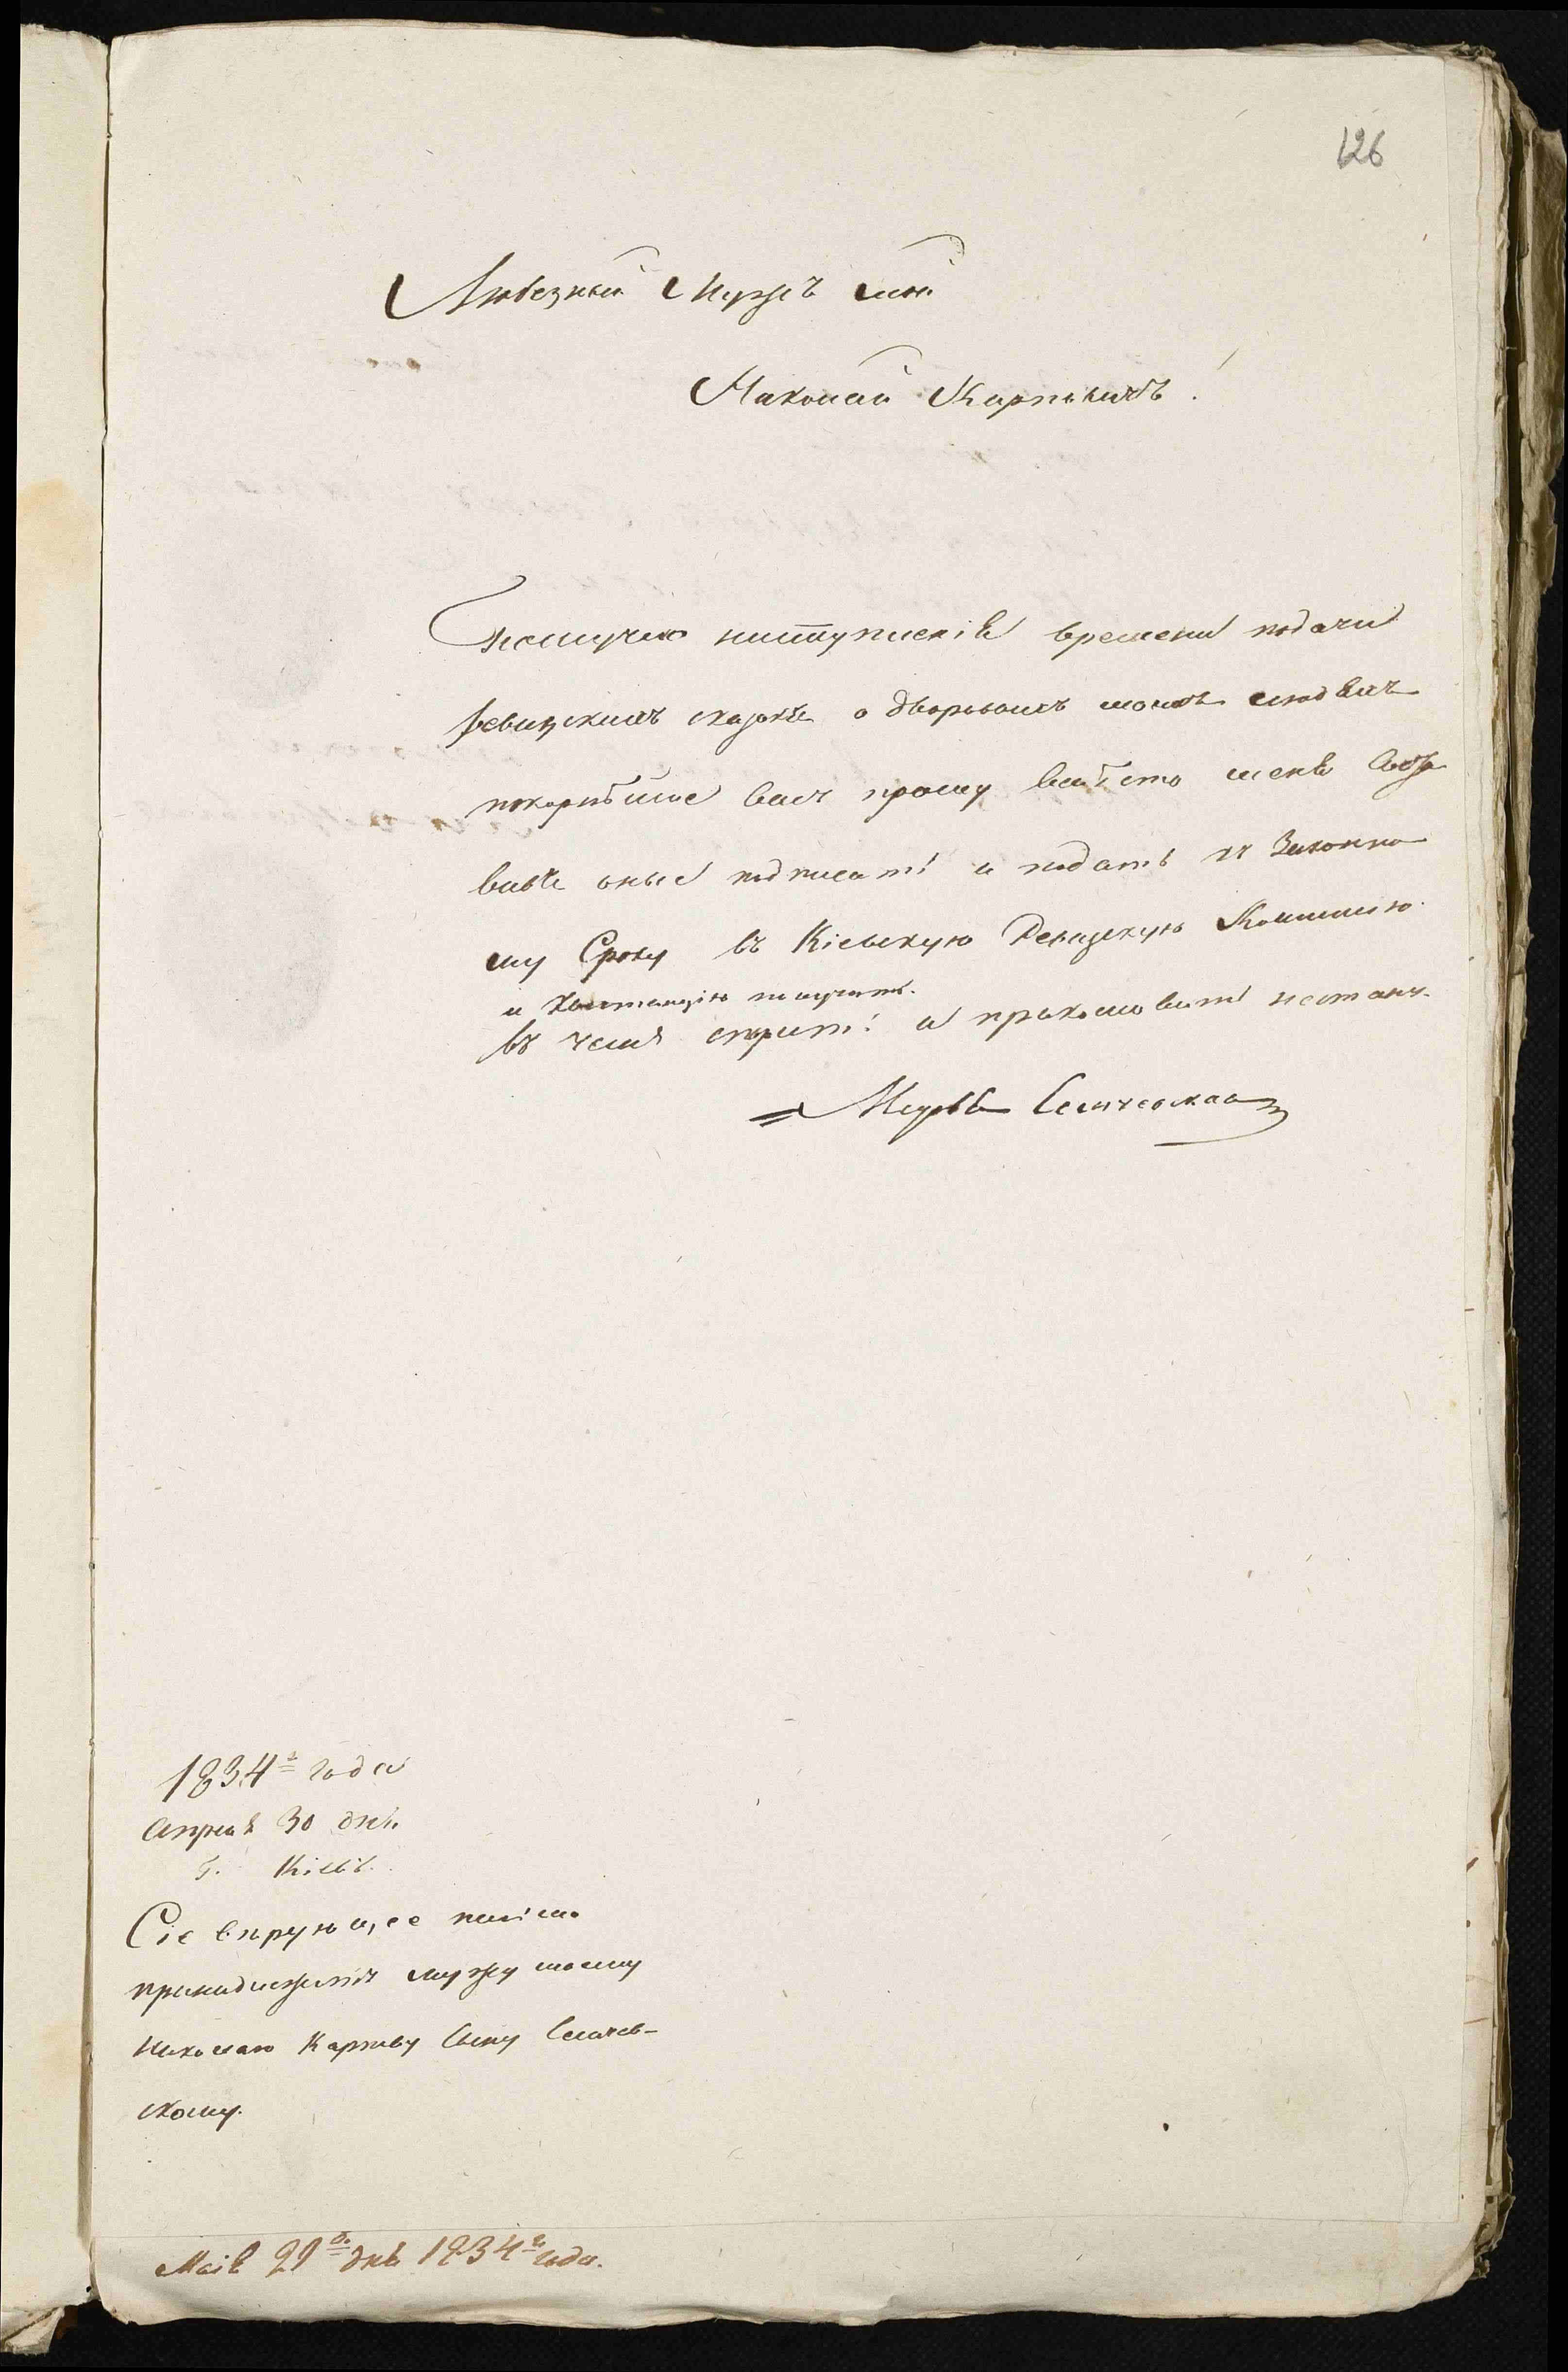 126
Любезный Мужъ мой
Николай Карповичъ!
Послучаю наступленія времени подачи
ревизскихъ сказокъ о дворовыхъ моихъ людяхъ
покорнѣйше васъ прошу вмѣсто меня
оные подписать и подать къ Законно
му Сроку въ Кіевскую Ревизскую Коммисію
и Квитанцію получить.
въ чемъ спорить и прекословить нестану.
Сѣмичевская
1834го года
Апреля 30 дня.
Г. Кіевъ.
Сіе вѣрующее письмо
принадлежитъ мужу моему
Николаю Карпову Сыну Сѣмичев-
скому.
Маія 29го дня 1834го года.